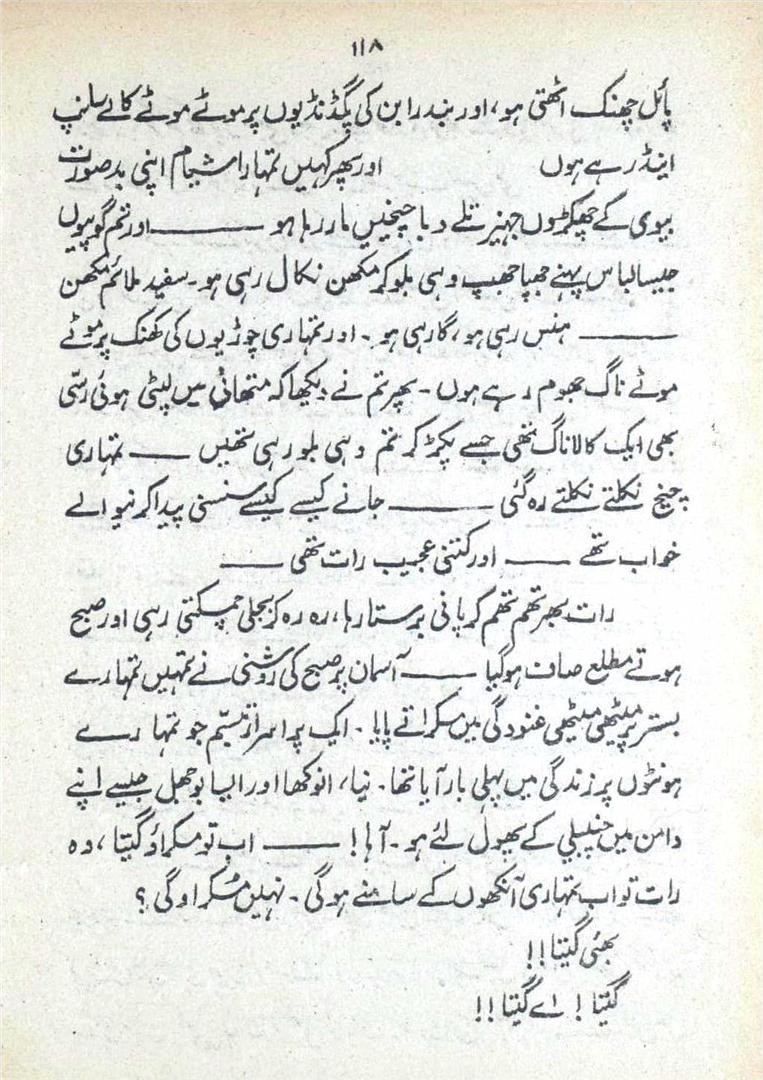 ۱۱۸
پائل چھنک اٹھتی ہو، اور بندرابن کی پگڈنڈیوں پر موٹے موٹے کالے سانپ
اینڈ رہے ہوں اور پھر کہیں تمہارا شیام اپنی بدصورت
بیوی کے چھکڑوں جہیز تلے دبا چیخیں مار رہا ہو ——— اور تم گوپیوں
جیسا لباس پہنے چھپا چھپ دہی بلو کر مکھن نکال رہی ہو۔ سفید ملائم مکھن
——— ہنس رہی ہو، گا رہی ہو۔ اور تمہاری چوڑیوں کی کھنک پر موٹے
موٹے ناگ جھوم رہے ہوں۔ پھر تم نے دیکھا کہ متھانی میں لپٹی ہوئی رسّی
بھی ایک کالا ناگ تھی جسے پکڑ کر تم دہی بلو رہی تھیں ——— تمہاری
چیخ نکلتے نکلتے رہ گئی ——— جانے کیسے کیسے سنسنی پیدا کرنیوالے
خواب تھے ——— اور کتنی عجیب رات تھی ———
رات بھر تھم تھم کر پانی برستا رہا، رہ رہ کر بجلی چمکتی رہی اور صبح
ہوتے مطلع صاف ہو گیا ——— آسمان پر صبح کی روشنی نے تمہیں تمہارے
بستر پر میٹھی میٹھی غنودگی میں مسکراتے پایا۔ ایک پراسرار تبسّم جو تمہارے
ہونٹوں پر زندگی میں پہلی بار آیا تھا۔ نیا، انوکھا اور ایسا بوجھل جیسے اپنے
دامن میں چنبیلی کے پھول لئے ہو۔ آہا! ——— اب تو مسکراؤ گیتا، وہ
رات تو اب تمہاری آنکھوں کے سامنے ہو گی۔ نہیں مسکراو گی؟
بھئی گیتا!!
گیتا! اے گیتا!!